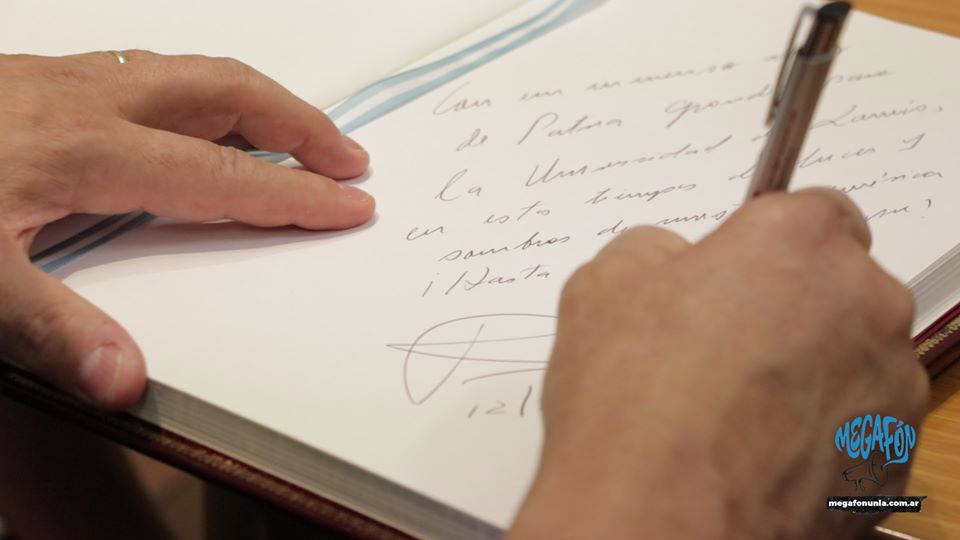 Con un inmenso
de Patria Grande para
la Universidad de Lanús,
en estos tiempos de luces y
sombras de nuestra américa
¡Hasta
12/
MEGAFÓN
megafonunla.com.ar